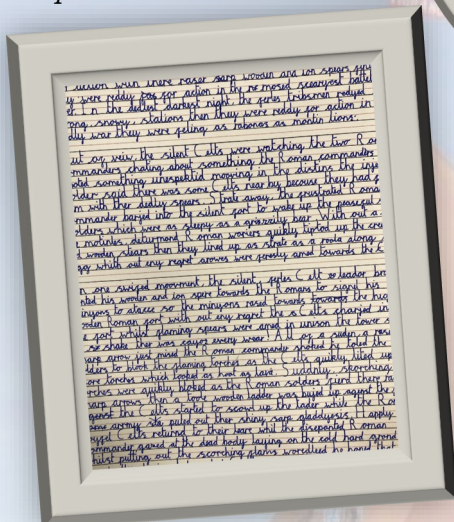 with there raser sarp wooden and ion spears
y were reddy for action in the ne mosed scearyest battel
I n the dedlest darkest night, the feres tribsmen redyed
ong, snowy, stalions then they were reddy for action in
dly war they were feling as rabonas as montin lions.
ut of veiw, the silent Celts were watching the two Ro
mmanders chating about something, the Roman commanders
oted something unespektid moving in the distins the
older said there was some Celts near by becouse they had
m with ther dedly spears. Strate away, the frustrated Roma
mmander barjed into the silent fort to wake up the peacegul
olders which were as sleepy as a grizzily bar. With out a
motinles, deturmond Roman wariers quickly tiptod up the
d wooden stears then they lined up as strate as a roola along
which out eny regret arowes were feresly amed towards the
n one swiped moovment, the silent feeles Celt leader
nted his wooden and ion spere towards the Romans to signd his
inyons to atacc so the minyons rased towards towards the hug
ooden Roman fort with out eny regret the Celts charjed in
e fort whilst glaming spears were amed in unison the tower
so shake ther was cayos every wear! All of a suden, a
arp arow just mised the Roman commander shoked he toled the
lders to block the flaming torches as the Celts quickly lited up
ore torches which looked as hort as lava. Suddnly, skorching
orches were quikly bloked as the Roman solders fierd there
sarp arows. Then a toole wooden ladder was buyed up agenst the
genst the Celts started to scowd up the lader while the Ro
army puled out ther shiny sarp gladdyusis. H apply
Celts returned to their leare whil the disepontid Roman
ommandr gazed at the dead body laying on the cold hard grond
hilst putting out the scorching flams woredleed he hoped that